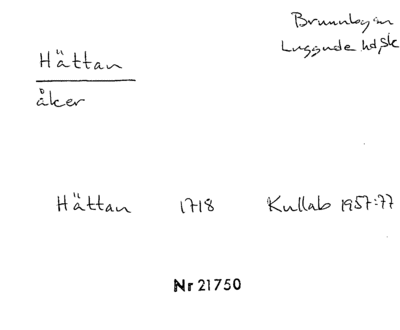 Brunnby sn
Luggude hd, Sk
Hättan
åker
Hättan 1718 Kullab 1957:77
Nr 21750